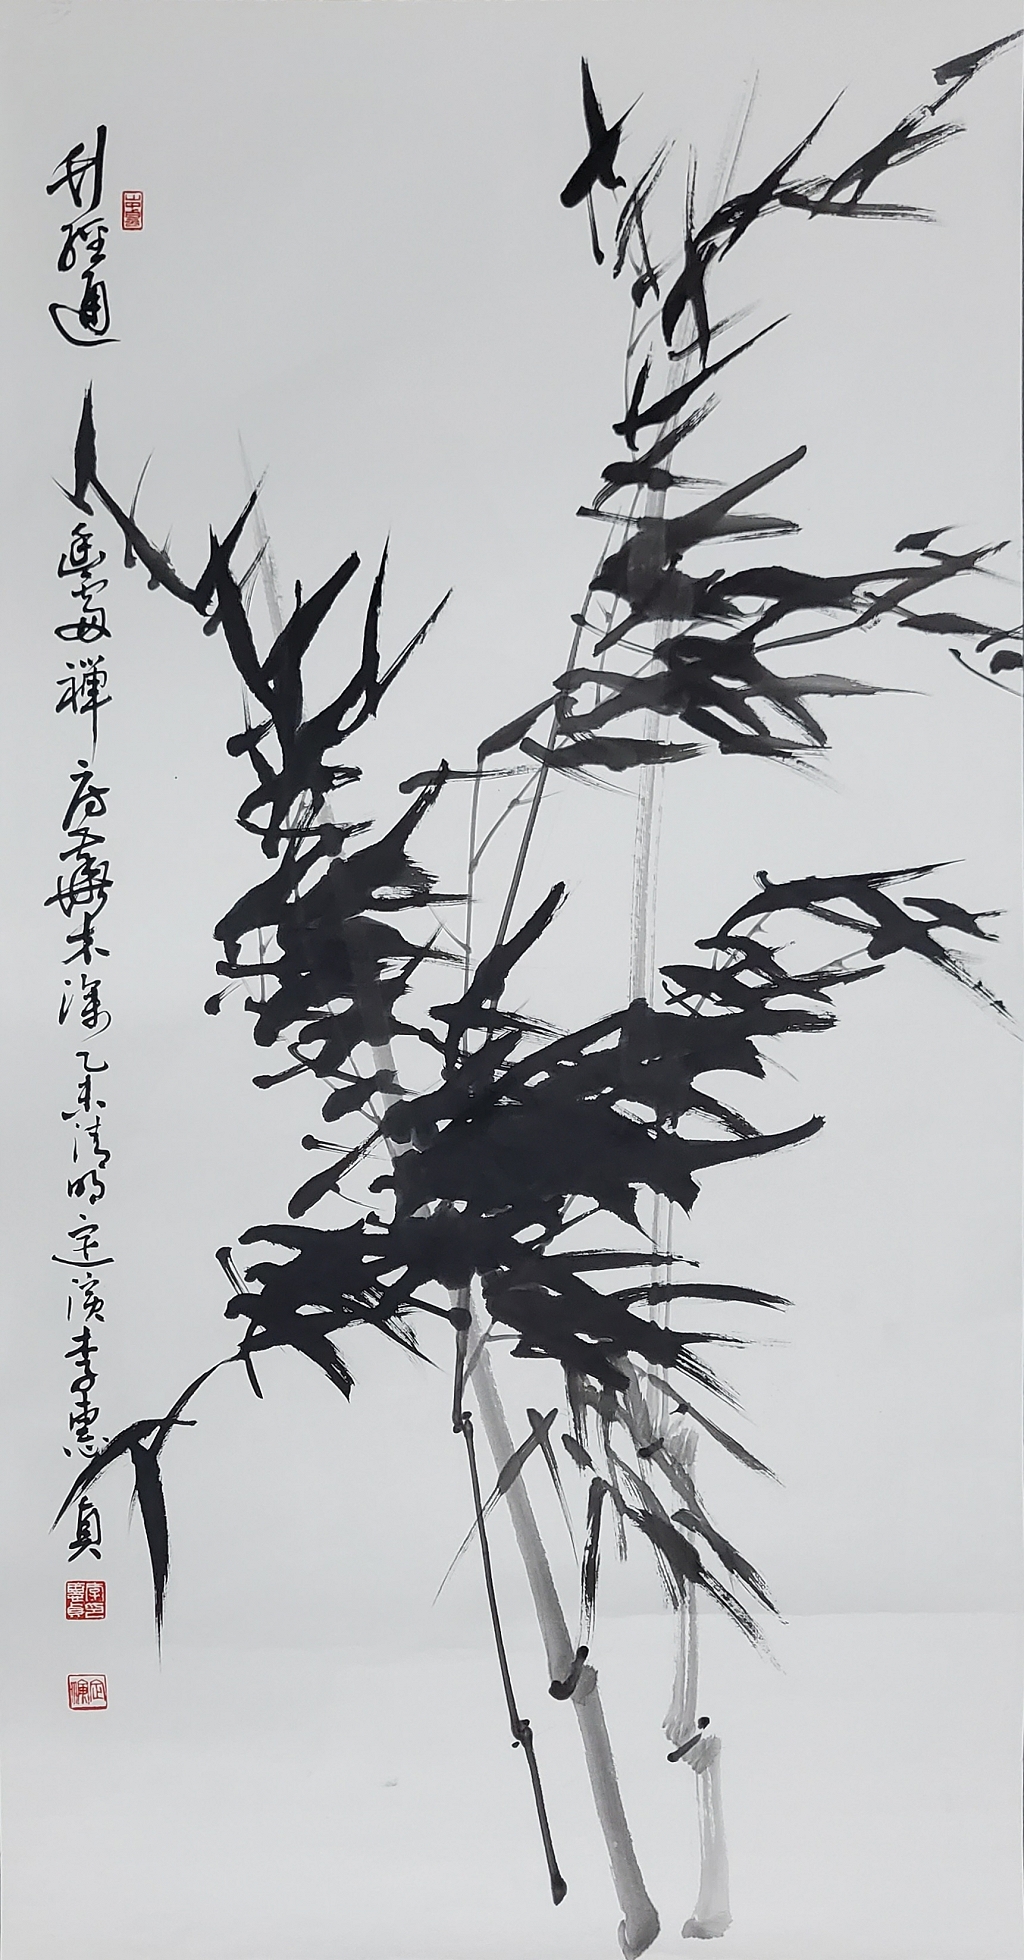 竹徑通幽處禪房花木深 乙未清明 定演 李惠貞